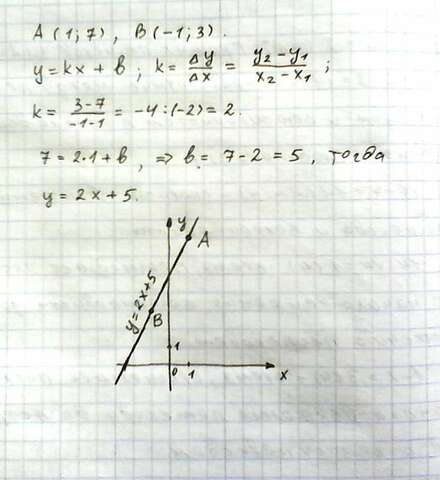 A (1; 7), B(-1; 3).
y = kx + b; k = Δy/Δx = (y₂ - y₁)/(x₂ - x₁);
k = (3-7)/(-1-1) = -4:(-2) = 2.
7 = 2·1 + b, => b = 7 - 2 = 5, тогда
y = 2x + 5.
y
A
y=2x+5
B
1
0 1
x